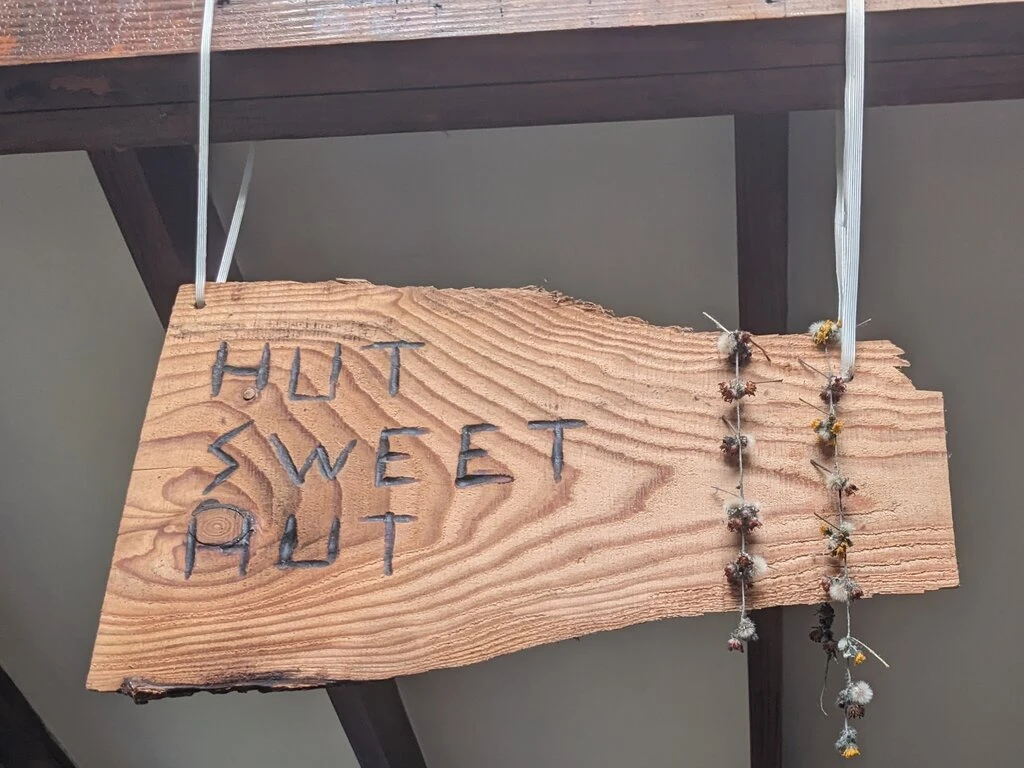 HUT
SWEET
HUT